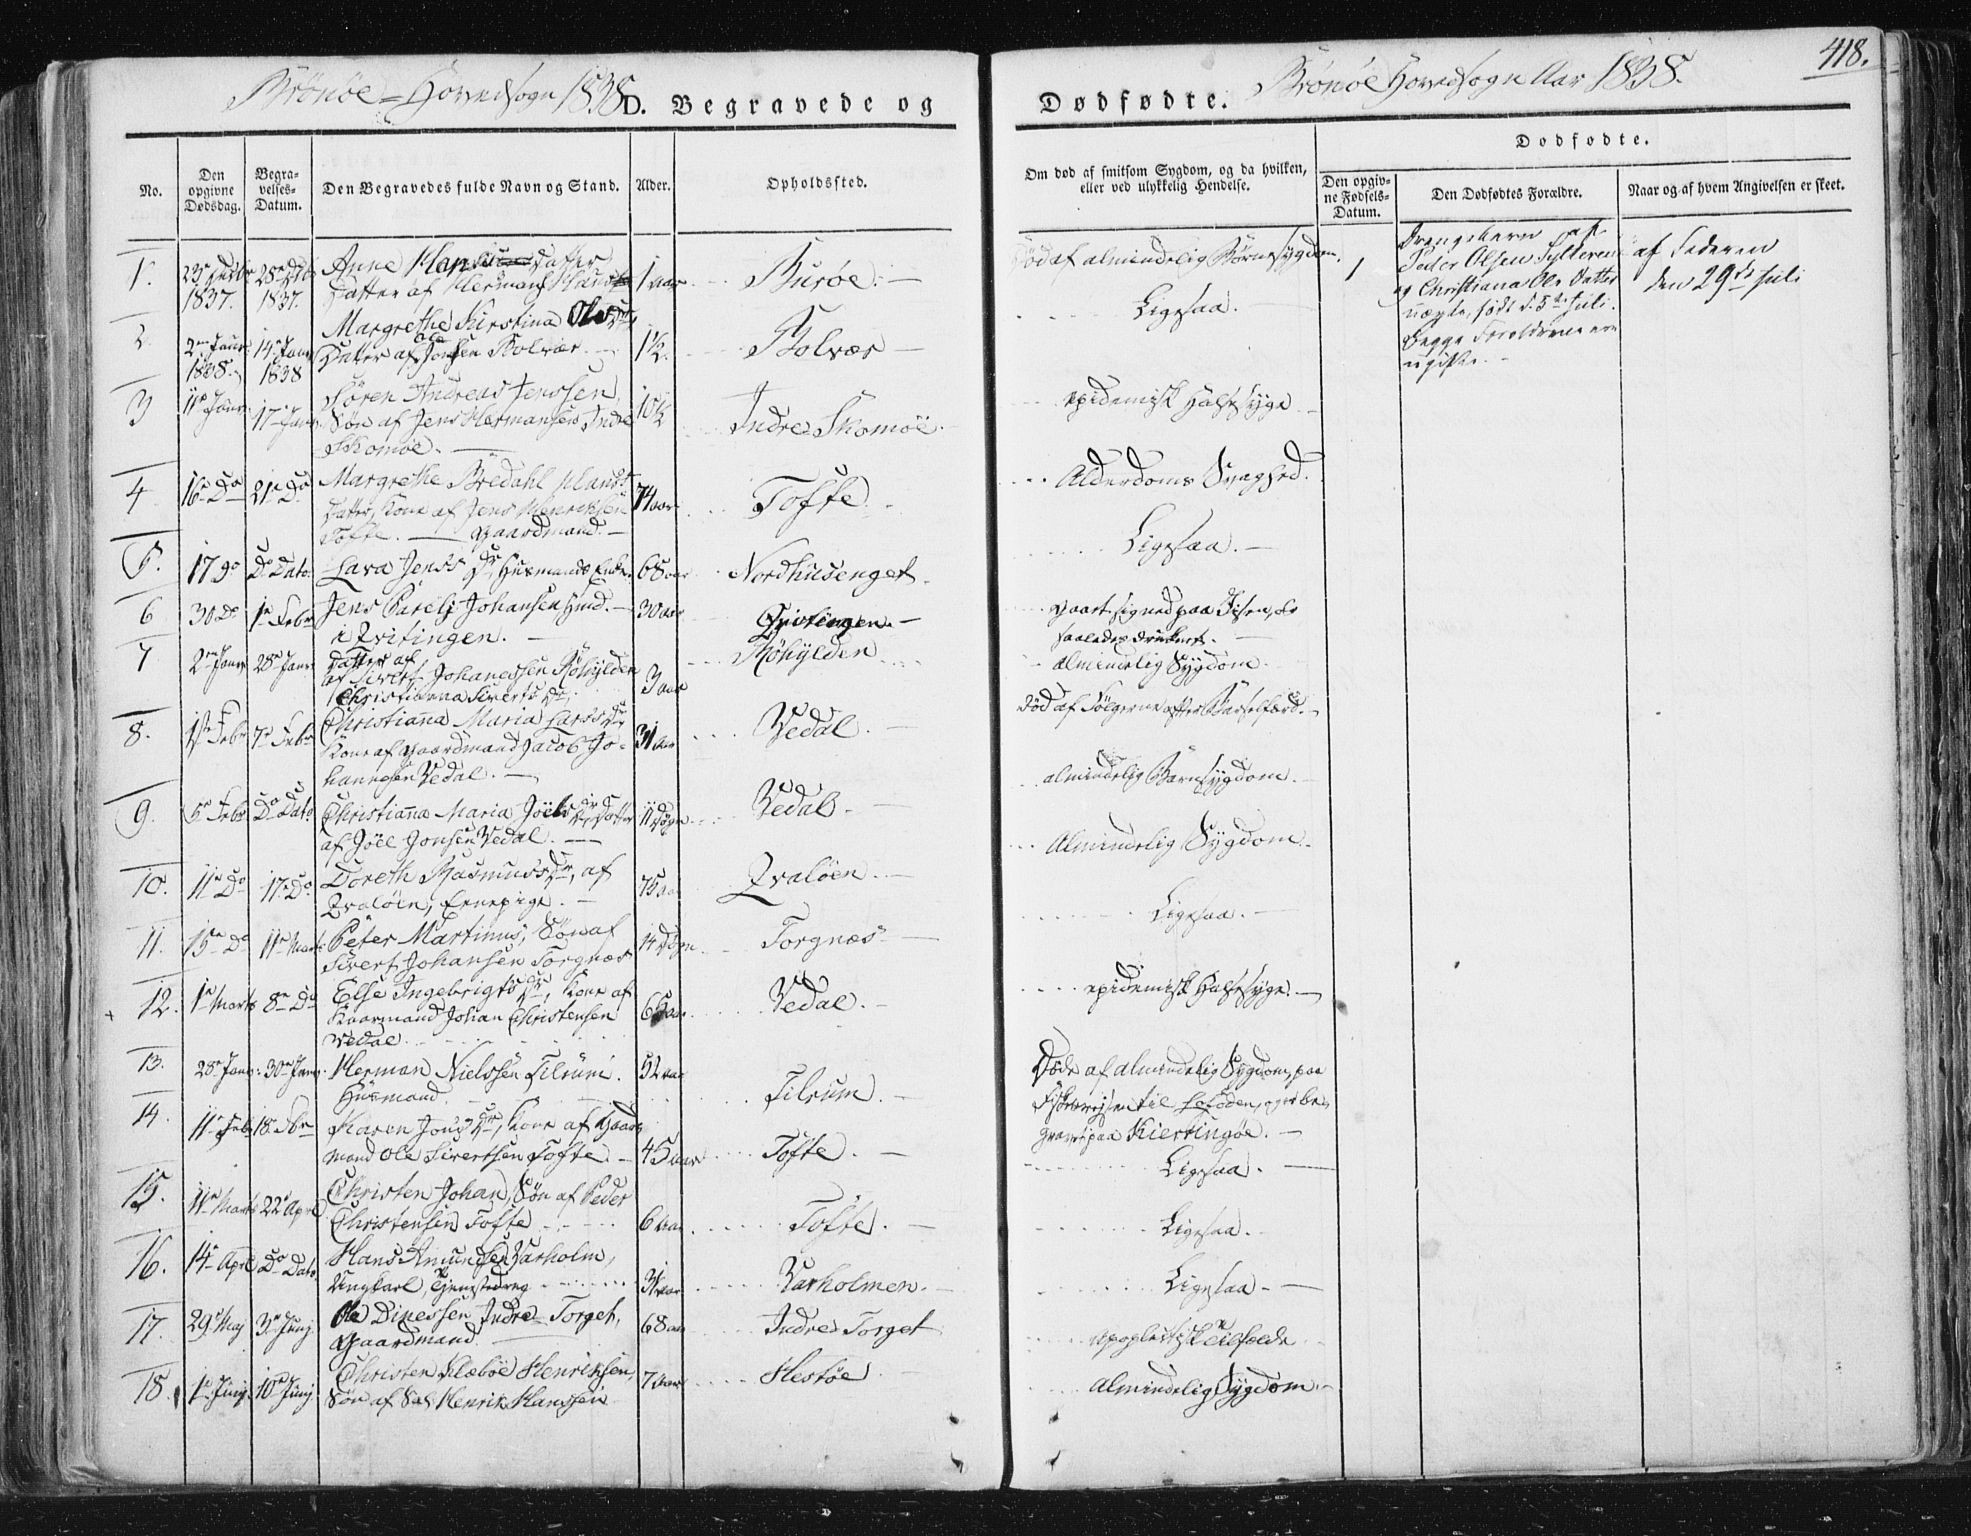 418.
Brönöe Hovedsogn 1838 D. Begravede og
Dødfødte. Brönöe Hovedsogn Aar 1838.
No.
Den opgivne Dødsdag.
Begravelses-Datum.
Den Begravedes fulde Navn og Stand.
Alder.
Opholdssted.
Om død af smitsom Sygdom, og da hvilken,
eller ved ulykkelig Hendelse.
Dødfødte.
Den opgivne Fødsels-Datum.
Den Dødfødtes Forældre.
Naar og af hvem Angivelsen er skeet.
1. 1837. 1837. Anne Datter
Datter af Herman 1 aar Burøe.
Død af almindelig Børnesygdom.
1 Drengebarn af
Peder Olsen
og Christiana Ols Datter
uægte, født d. 5te Juli.
Begge Forældrene ere
ugifte.
af Faderen
den 29de Juli
2. 2den Janr 1838. 14de Janr 1838 Margrethe Kirstina Ols Dtr
Datter af Ole Jonsen Bolvær. 1½. Bolvær
Ligesaa.
3 11te Janr 17de Janr Søren Andreas Jenssen,
Søn af Jens Hermansen Indre
Skomøe. 10½ Indre Skomöe.
epidemisk Halssyge
4 16de Do 21de Do Margrethe Bredahl Hans
Datter, Kone af Jens Henriksen
Tofte. Gaardmand. 74 aar Tofte
Alderdoms Svaghed.
5. 17 Do Do Dato. Lava Jens Dr Husmands Enke. 68 aar Nordhusenget.
Ligesaa.
6 30 Do 1te Febr Jens Johansen
i Qvitingen. 30 aar Qvitingen.
7 2den Janr 28de Janr Datter af
af Sivert Johanessen Röhylden
Christianna Siverts Dr. 3 aar Röhylden
almindelig Sygdom.
8. 1ste Febr 7de Febr Christiana Maria Lars Dr
Kone af Gaardmand Jacob Jo-
hannesen Vedal. 31 aar Vedal.
Død af Følgerne efter Barselfærd.
9. 5te Febr Do Dato Christianna Maria Joels Dr Datter
af Joel Jonsen Vedal. 11 Døgn Vedal.
almindelig Barnsygdom.
10. 11te Do 17de Do Doreth Rasmus Dr, af
Qvaløen, 75 aar Qvaløen.
Almindelig Sygdom.
11. 15de Do 11te Marts Peter Martinus, Søn af
Sivert Johansen Torgnæs 14 Døgn Torgnæs
Ligesaa.
12. 1te Marts 8de Do Else Ingebrigts Dr, Kone af
Johan Christensen
Vedal. aar Vedal.
epidemisk Halssyge.
13. 28de Janr. 30te Janr. Herman Nielssen Tilrum.
Husmand. 52 aar Tilrum.
Døde af almindelig Sygdom, paa
Fiskereisen til Lofoden, og er be-
gravet paa Kierringøe.
14. 11te Febr 18de Febr Karen Jons Dr, Kone af Gaard-
mand Ole Sivertsen Tofte. 45 aar Tofte.
Ligesaa.
15. 11te Marts 22de April Christen Johan, Søn af Peder
Christensen Tofte 6 aar Tofte.
Ligesaa.
16. 14de April Do Dato Hans Amundsen Varholm,
Ungkarl, Tjenestedreng 31 aar Varholmen.
Ligesaa
17. 29de Maj 3de Junj Ole Dinessen Indre Torget,
Gaardmand 68 aar Indre Torget
apoplectisk tilfælde
18. 1te Junj 10de Junj Christen Klæbøe Henriksen,
Søn af Sal. Henrik Hanssen 7 aar Hestøe
Almindelig Sygdom.